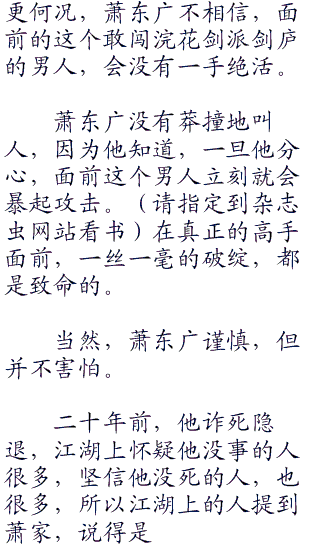 更何况，萧东广不相信，面
前的这个敢闯浣花剑派剑庐
的男人，会没有一手绝活。
萧东广没有莽撞地叫
人，因为他知道，一旦他分
心，面前这个男人立刻就会
暴起攻击。（请指定到杂志
虫网站看书）在真正的高手
面前，一丝一毫的破绽，都
是致命的。
当然，萧东广谨慎，但
并不害怕。
二十年前，他诈死隐
退，江湖上怀疑他没事的人
很多，坚信他没死的人，也
很多，所以江湖上的人提到
萧家，说得是